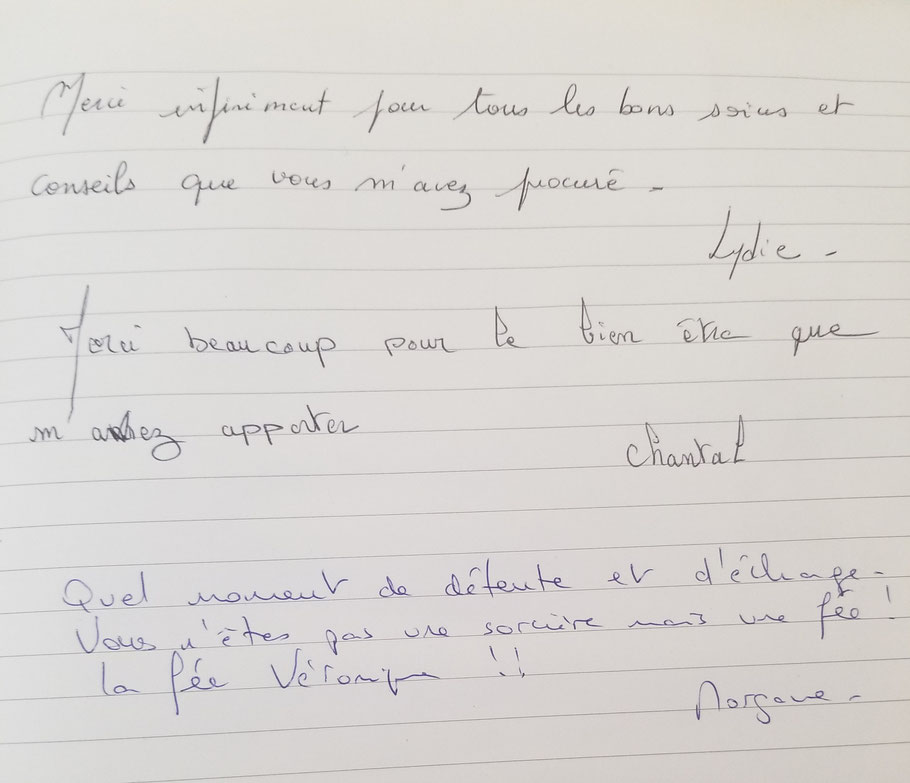 Merci infiniment pour tous les bons soins et
conseils que vous m'avez procuré -
Lydie -
Merci beaucoup pour le bien être que
m'avez apporter
Chantal
Quel moment de détente et d'échange -
Vous n'êtes pas une sorcière mais une fée !
la fée Véronique !!
Morgane -